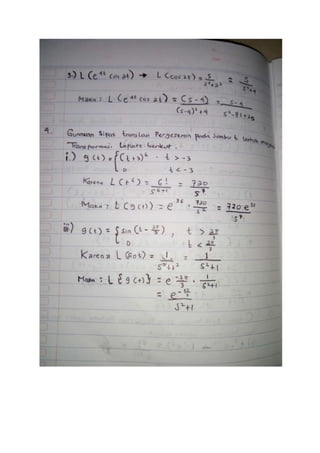 3) L (e⁴ᵗ cos 2t) → L (cos 2t) = s/(s²+2²) = s/(s²+4)
Maka : L (e⁴ᵗ cos 2t) = (s-4)/((s-4)²+4) = s-4/(s²-8s+20)
4. Gunakan sifat translasi Pergeseran pada Sumbu t untuk
Transformasi Laplace berikut.
i.) g(t) = { (t+3)⁶ . t > -3
0 t < -3
Karena L(t⁶) = 6!/s⁶⁺¹ = 720/s⁷
Maka : L (g(t)) = e³ˢ . 720/s⁷ = 720 e³ˢ/s⁷
ii) g(t) = { sin (t - 2π/3), t > 2π/3
0 t < 2π/3
Karena L (sin t) = 1/(s²+1²) = 1/(s²+1)
Maka : L {g(t)} = e^(-2π/3) . 1/(s²+1)
= e^(-2π/3)/(s²+1)